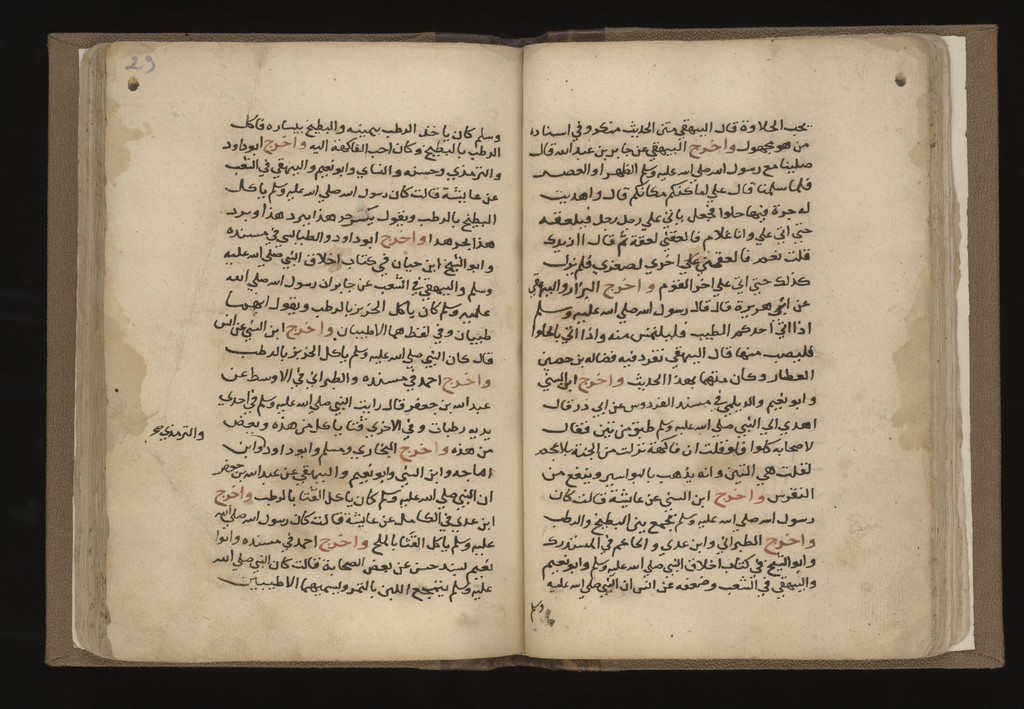 يحب الحلاوة قال البيهقي متن الحديث منكر وفي اسناده
من هو مجهول واخرج البيهقي عن جابر بن عبد الله قال
صلينا مع رسول الله صلي الله عليه وسلم الظهر او العصر
فلما سلمنا قال علي اماكنكم مكانكم قال واهديت
له جرة فيها حلوا فجعل ياتي علي رجل رجل فيلعقه
حتي اتي علي وانا غلام فالعقني لعقة ثم قال ازيدك
قلت نعم فالعقني اخري لصغري فلم يزل
كذلك حتي اتي علي اخر القوم واخرج البزار والبيهقي
عن ابي هريرة قال قال رسول الله صلي الله عليه وسلم
اذا اتي احدكم الطيب فليلمس منه واذا اتي بالحلوا
فليصب منها قال البيهقي تفرد فيه فضاله بن حصين
العطار وكان متهما بهذا الحديث واخرج ابن السني
وابو نعيم والديلمي في مسند الفردوس عن ابي ذر قال
اهدي الي النبي صلي الله عليه وسلم طبق من تين فقال
لاصحابه كلوا فلو قلت ان فاكهة نزلت من الجنة بلا عجم
لقلت هي التين وانه يذهب بالبواسير وينفع من
النقرس واخرج ابن السني عن عايشة قالت كان
رسول الله صلي الله عليه وسلم يجمع بين البطيخ والرطب
واخرج الطبراني وابن عدي والحاكم في المستدرك
وابو الشيخ في كتاب اخلاق النبي صلي الله عليه وسلم وابو نعيم
والبيهقي في الشعب وضعفه عن انس ان النبي صلي الله عليه
29
وسلم كان ياخذ الرطب بيمينه والبطيخ بيساره فياكل
الرطب بالبطيخ وكان احب الفاكهة اليه واخرج ابو داود
والترمذي وحسنه والنساي وابو نعيم والبيهقي في الشعب
عن عايشة قالت كان رسول الله صلي الله عليه وسلم ياكل
البطيخ بالرطب ويقول يكسر حر هذا ببرد هذا وبرد
هذا بحر هذا واخرج ابو داود والطيالسي في مسنده
وابو الشيخ ابن حيان في كتاب اخلاق النبي صلي الله عليه
وسلم والبيهقي في الشعب عن جابر ان رسول الله صلي الله
عليه وسلم كان ياكل الخربز بالرطب ويقول انهما
طيبان وفي لفظ هما الاطيبان واخرج ابن السني عن انس
قال كان النبي صلي الله عليه وسلم ياكل الخربز بالرطب
واخرج احمد في مسنده والطبراني في الاوسط عن
عبد الله بن جعفر قال رايت النبي صلي الله عليه وسلم في احدي
يديه رطبات وفي الاخري قثا ياكل من هذه وبعض
والترمذي
من هذه واخرج البخاري ومسلم وابو داود وابن
ماجه وابن السني وابو نعيم والبيهقي عن عبد الله بن جعفر
ان النبي صلي الله عليه وسلم كان ياكل القثا بالرطب واخرج
ابن عدي في الكامل عن عايشة قالت كان رسول الله صلي الله
عليه وسلم ياكل القثا بالملح واخرج احمد في مسنده وابوا
نعيم بسند حسن عن بعض الصحابة قالت كان النبي صلي الله
عليه وسلم يتمجع اللبن بالتمر ويسميهما الاطيبين